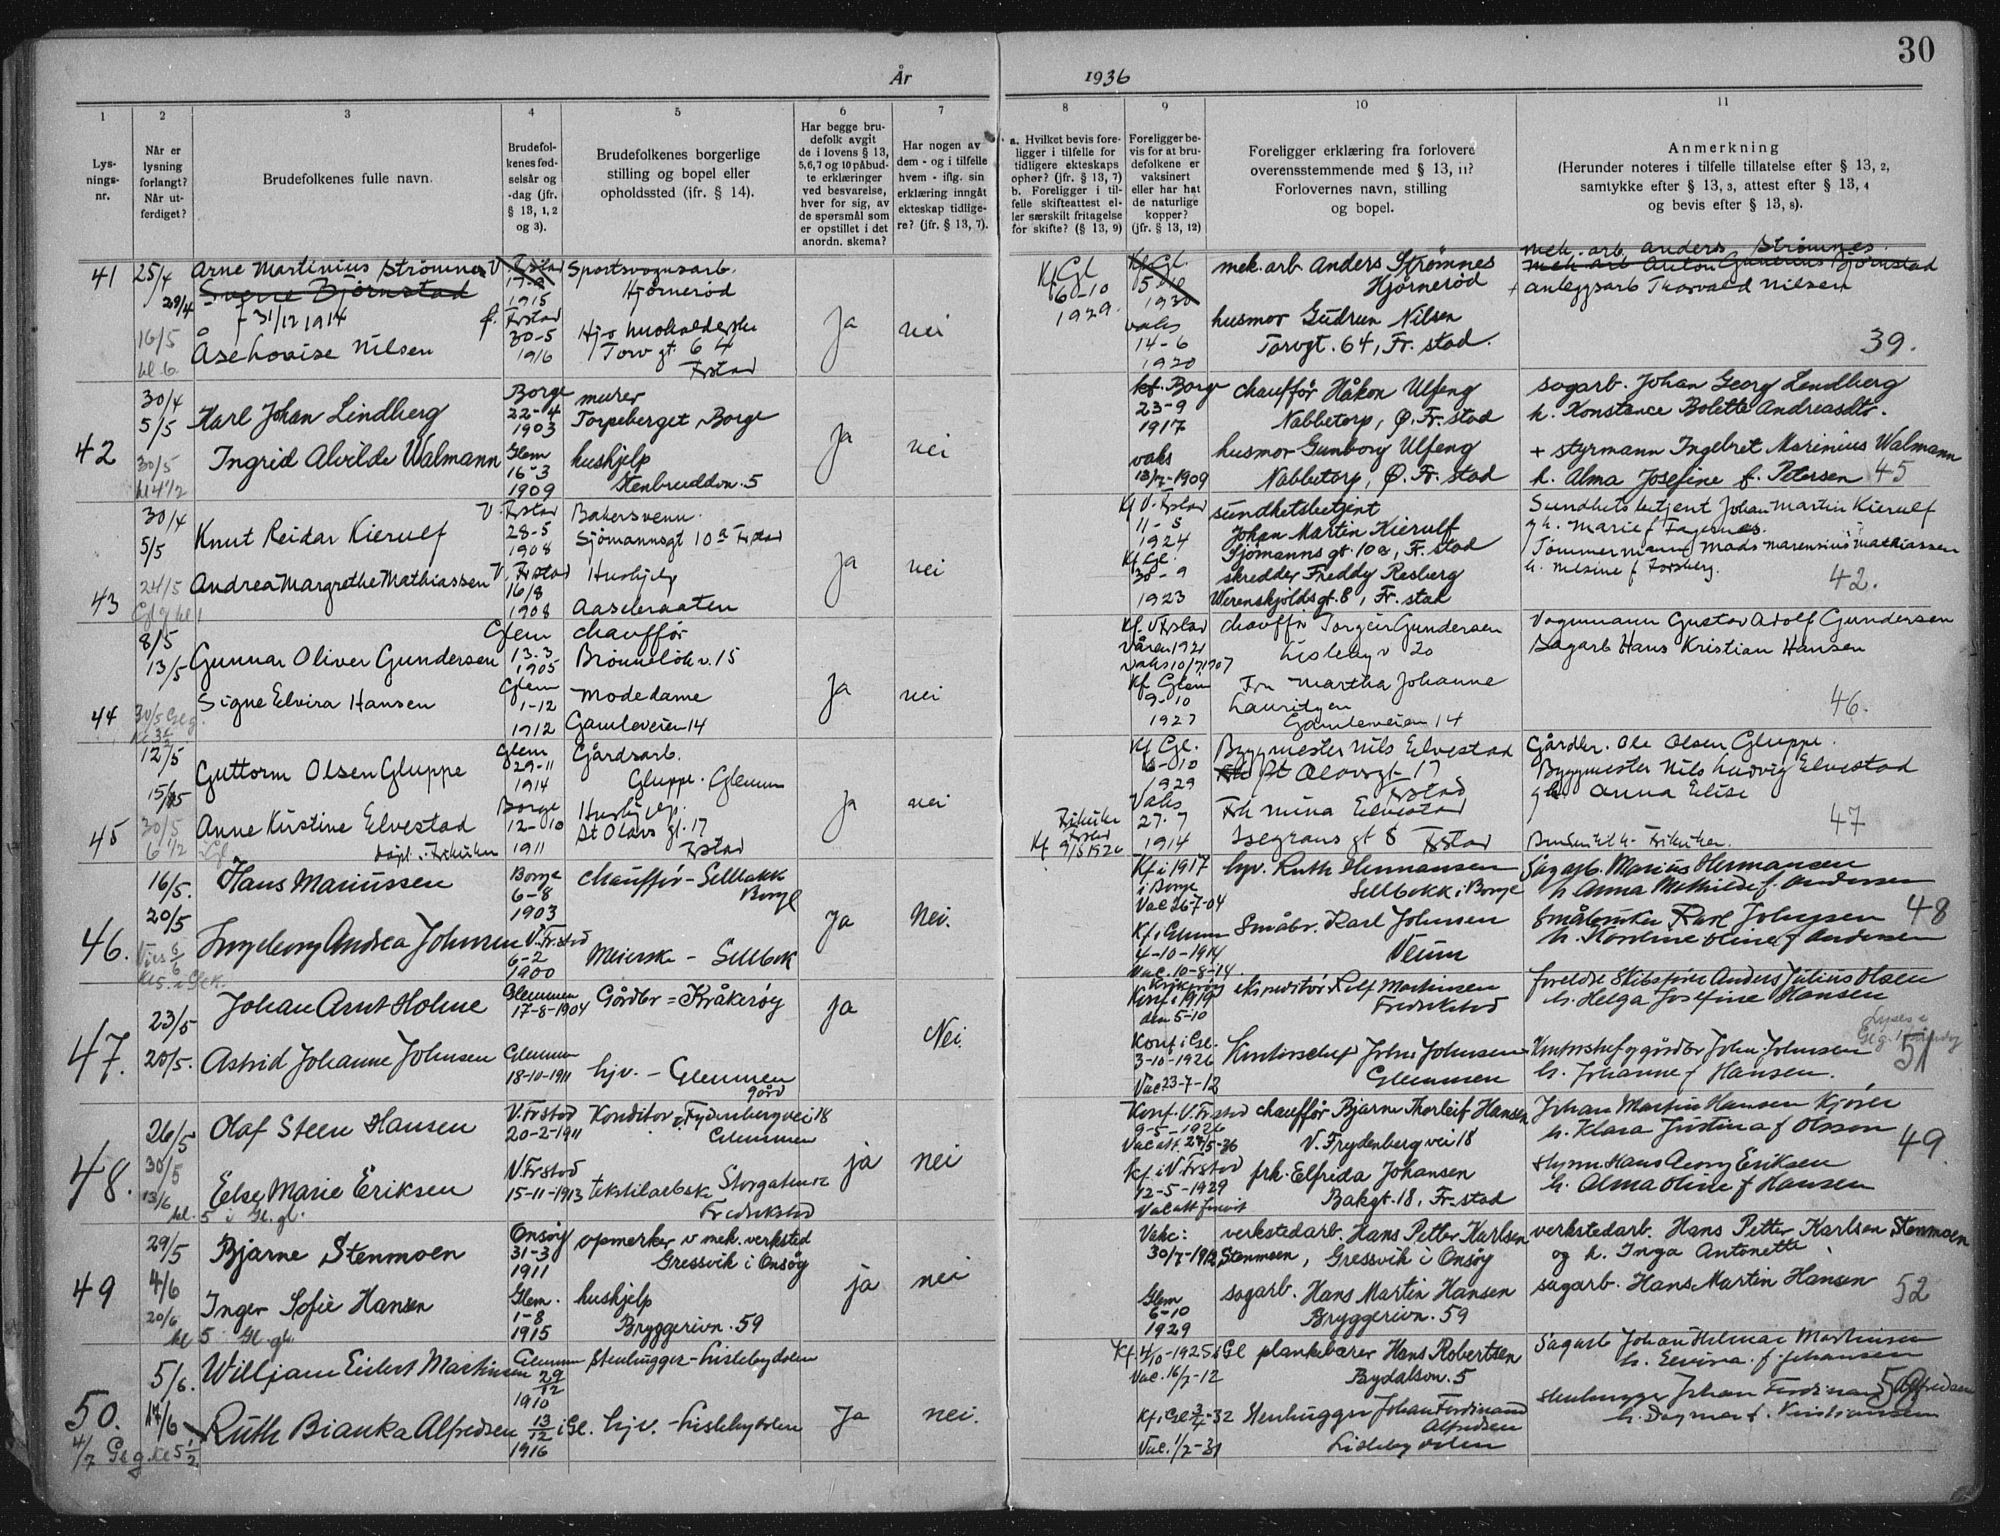 30
År 1936
1
2
3
4
5
6
7
8
9
10
11
Lys-
nings-
nr.
Når er
lysning
forlangt?
Når ut-
ferdiget?
Brudefolkenes fulle navn.
Brudefol-
kenes fød-
selsår og
-dag (jfr.
§ 13, 1, 2
og 3).
Brudefolkenes borgerlige
stilling og bopel eller
opholdssted (ifr. § 14).
Har begge bru-
defolk avgit
de i lovens § 13,
5,6,7 og 10 påbud-
te erklæringer
ved besvarelse,
hver for sig, av
de spørsmål som
er opstillet i det
anordn. skema?
Har nogen av
dem - og i tilfelle
hvem - iflg. sin
erklæring inngått
ekteskap tidlige-
re? (jfr. § 13, 7).
a. Hvilket bevis fore-
ligger i tilfelle for
tidligere ekteskaps
ophør? (jfr. § 13, 7)
b. Foreligger i til-
felle skifteattest el-
ler særskilt fritagelse
for skifte? (§ 13, 9)
Foreligger be-
vis for at bru-
defolkene er
vaksinert
eller har hat
de naturlige
kopper?
(jfr. § 13, 12)
Foreligger erklæring fra forlovere
overensstemmende med § 13, 11?
Forlovernes navn, stilling
og bopel.
Anmerkning
(Herunder noteres i tilfelle tillatelse efter § 13, 2,
samtykke efter § 13, 3, attest efter § 13, 4
og bevis efter § 13, 8).
41
25/4
29/4
16/5
kl 6
Arne Martinius Strømnes
Sverre Bjørnstad
f 31/12 1914
Åse Lovise Nilsen
1915
Frstad
30-5
1916
Sportsvognarb.
Hjørnerød
Torv gt. 64
Frstad
Ja
nei
Kf Gl
6-10
1929
Kf Gl.
1930
vaks
14-6
1920
mek. arb Anders Strømnes
Hjørnerød
husmor Gudrun Nilsen
Torvgt. 64, Fr. stad.
mek. arb. Anders Strømnes
mek arb Anton Gunerius Bjørnstad
+ anleggsarb Thorvald Nilsen
39.
42
30/4
5/5
30/5
kl 4 1/2
Karl Johan Lindberg
Ingrid Alvilde Walmann
Borge
22-4
1903
Glem
16-3
1909
murer
Torpeberget, Borge
hushjelp
Stenbruddvn. 5
Ja
nei
kf. Borge
23-9
1917
vaks
13/7-1909
chauffør Håkon Ulfeng
Nabbetorp, Ø. Fr. stad
husmor Gunborg Ulfeng
Nabbetorp, Ø. Fr. stad
sagarb. Johan Georg Lindberg
h. Konstance Bolette Andreasdtr.
+ styrmann Ingebret Marinius Walmann
h. Alma Josefine f. Petersen 45
43
30/4
5/5
24/5
Knut Reidar Kierulf
Andrea Margrethe Mathiassen
V. Frstad
28-5
1908
V. Frstad
16/8
1908
Bakersvenn.
Sjømannsgt 10a Frstad
Hushjelp
Aaseleraaten
Ja
nei
Kf V. Frstad
11-5
1924
Kf Gl.
30-9
1923
sundhetsbetjent
Johan Martin Kierulf
Sjømanns gt. 10a, Fr. stad
skredder Freddy Resberg
Werenskjoldsgt. 8, Fr. stad
Sundhetsbetjent Johan Martin Kierulf
g h. Marie f Fagernes.
Tømmermann Mads Marensius Mathiassen
h. Nilsine f Forsberg.
42.
44
8/5
13/5
30/5 Gl g.
Kl 3 1/2
Gunnar Oliver Gundersen
Signe Elvira Hansen
Glem
13.3
1905
Glem
1-12
1912
chauffør
Brønneløkv. 15
Modedame
Gamleveien 14
Ja
nei
Kf. V Frstad
Våren 1921
Vaks 10/7 1907
Kf Glem
9-10
1927
chauffør Torgeir Gundersen
Lisleby v 20
Fru Martha Johanne
Lauritzen
Gamleveien 14
Vognmann Gustav Adolf Gundersen
Sagarb Hans Kristian Hansen
46.
45
12/5
15/5
30/5
6 1/2
Guttorm Olsen Gluppe
Anne Kirstine Elvestad
Glem
29-11
1914
Borge
12-10
1911
Gårdsarb.
Gluppe. Glemm
Hushjelp.
St Olavs gt. 17
Frstad
Ja
nei
Frikirken
Frstad
Kf 9/5 1926
Kf Gl.
6-10
1929
Vaks
27.7
1914
Byggmester Nils Elvestad
St Olavsgt 17
Frstad
Frk Mina Elvestad
Isegrans gt 8 Frstad
Gårdbr. Ole Olsen Gluppe.
Byggmester Nils Ludvig Elvestad
g h. Anna Elise
47
46.
16/5.
20/5
Hans Mariussen
Ingeborg Andrea Johnsen
Borge
6-8
1903
V. Frstad
6-2
1900
chauffør - Sellbakk
Borge
Meierske - Sellbak
Ja
Nei.
Kf i 1917
i Borge
Vac 26-7-04
Kf i Glemm
4-10-1914
Vac. 10-8-14.
hjv. Ruth Hermansen
Sellbakk i Borge
Småbr. Karl Johnsen
Veum
Sagarb. Marius Hermansen
h. Anna Mathilde f. Andersen
Småbruker Karl Johnsen
h. Nordine Oline f Andersen
48
47.
23/5
20/5.
Johan Arnt Holme
Astrid Johanne Johnsen
Glemmen
17-8-1904
Glemmen
18-10-1911
Gårdbr = Kråkerøy
hjv. - Glemmen
gård
ja
Nei.
Kråkerøy
Konf i 1919
den 5-10
Konf i Gl.
3-10-1926
Vac 23-7-12
ekspeditør Rolf Martinsen
Fredrikstad
Kontorchef John Johnsen
Glemmen
foreldre Skibsfører Anders Julius Olsen
h. Helga Josefine Hansen
Kontorchef og gårdbr John Johnsen
h. Johanne f Hansen.
51
48.
26/5
30/5
13/6
kl. 5 i Gl. gl.
Olaf Steen Hansen
Else Marie Eriksen
V. Frstad
20-2-1911
V. Frstad
15-11-1913
Konditor V. Frydenbergvei 18
Glemmen
tekstilarbske Storgaten
Fredrikstad
ja
nei
Konf. V. Frstad
9-5-1926
Kf. i V. Frstad
12-5-1929
Vacatt forevist
chauffør Bjarne Thorleif Hansen
V. Frydenberg vei 18
frk. Elfrida Johansen
Bakgt. 18, Fr-stad
Johan Martin Hansen Kjører
h. Klara Justina f Olsson
styrm. Hans Georg Eriksen
h. Alma Oline f Hansen
49.
49
29/5
4/6
20/6
kl 5 Gl. gl.
Bjarne Stenmoen
Inger Sofie Hansen
Onsøy
31-3
1911
Glem.
1-8
1915
opmerker v mek. verksted
Gressvik i Onsøy
hushjelp
Bryggerivn. 59
ja
nei
Vakc:
30/7-1912
Glem
6-10
1929
verkstedarb. Hans Petter Karlsen
Stenmoen, Gressvik i Onsøy
sagarb. Hans Martin Hansen
Bryggerivn. 59
verkstedarb. Hans Petter Karlsen Stenmoen
og h. Inga Antonette
sagarb. Hans Martin Hansen
52
50.
5/6.
4/7 Gl g. kl 5 1/2
William Eilert Martinsen
Ruth Bianka Alfredsen
Glemmen
29/12
1910
13/12 i Gl.
1916
Stenhugger - Lislebydalen
hjv. - Lislebydalen
Ja
nei.
Kf. 4/10-1925 i Gl
Vac. 16/7-12
Kf. i Gl 3/4-32
Vac. 1/2-31
plankebærer Hans Robertsen
Bydalsvn. 5
Stenhugger Johan Ferdinand
Alfredsen
Lislebydalen
Sagarb Johan Hilmar Martinsen
h. Elvina f. Johansen
Stenhugger Johan Ferdinand Alfredsen
h. Dagmar f. Kristiansen
50